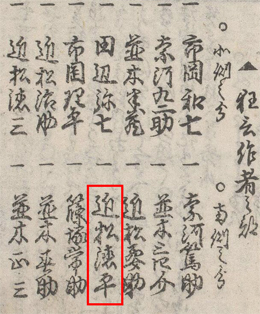 ▲狂言作者之部
○北側之分
一 市岡和七
一 奈河九二助
一 並木
一 田辺弥七
一 市岡理平
一 近松治助
一 近松徳三
○南側之分
一 奈河篤助
一 並木三四介
一 近松要助
一 近松徳平
一 篠塚常助
一 並木喜助
一 並木正三